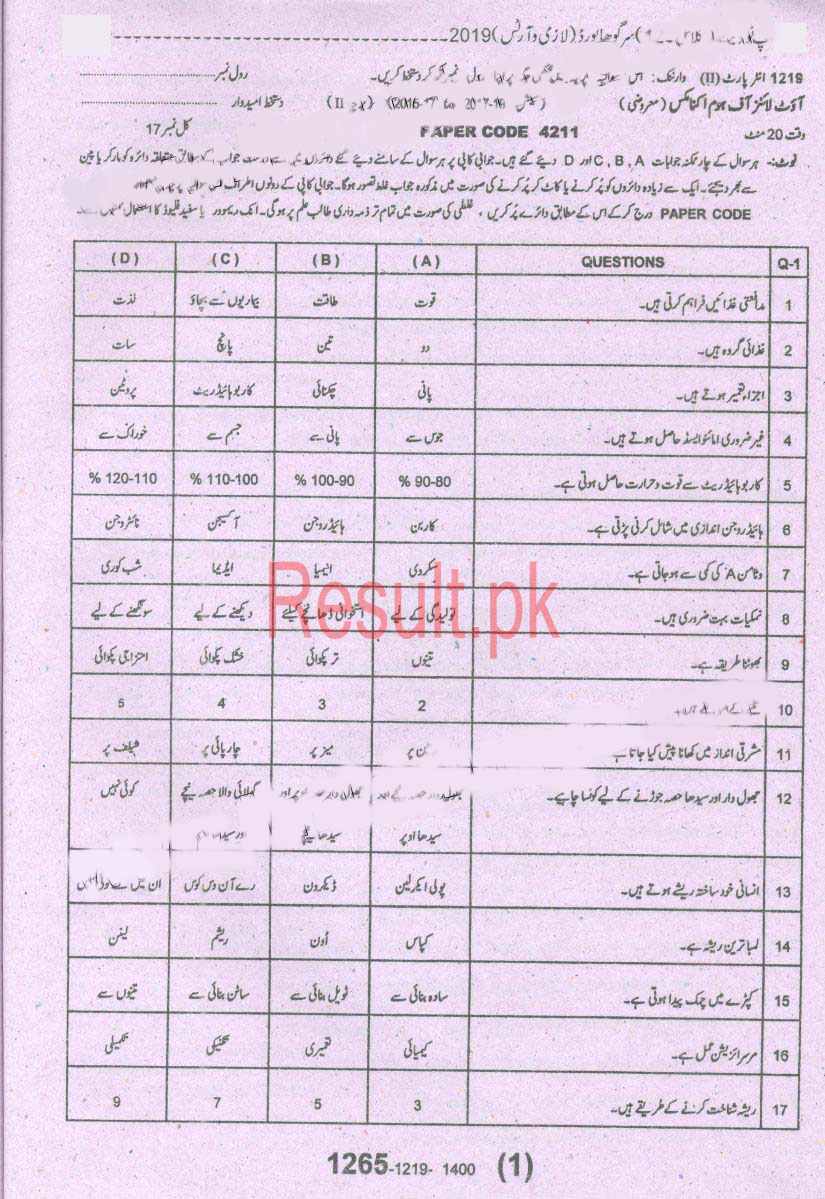 سرگودھا بورڈ (لازمی و آرٹس) 2019
1219 انٹر پارٹ (II) وارننگ: اس سوالیہ رول نمبر دستخط کریں۔ رول نمبر
آؤٹ لائنز آف ہوم اکنامکس (معروضی) دستخط امیدوار
وقت 20 منٹ PAPER CODE 4211 کل نمبر 17
نوٹ:- ہر سوال کے چار ممکنہ جوابات C, B, A اور D دیئے گئے ہیں۔ جوابی کاپی پر ہر سوال کے سامنے دیئے گئے دائروں میں سے درست جواب کے مطابق متعلقہ دائرہ کو مارکر یا پین
سے بھر دیجئے۔ ایک سے زیادہ دائروں کو پُر کرنے یا کاٹ کر پُر کرنے کی صورت میں مذکورہ جواب غلط تصور ہوگا۔ جوابی کاپی کے دونوں اطراف
PAPER CODE درج کرکے اس کے مطابق دائرے پُر کریں، غلطی کی صورت میں تمام تر ذمہ داری طالب علم پر ہوگی۔ انک ریموور یا سفید فلیوڈ کا استعمال
Q-1 QUESTIONS (A) (B) (C) (D)
1 مدافعتی غذائیں فراہم کرتی ہیں۔ قوت طاقت بیماریوں سے بچاؤ لذت
2 غذائی گروہ ہیں۔ دو تین پانچ سات
3 اجزاء تعمیر ہوتے ہیں۔ پانی چکنائی کاربوہائیڈریٹ پروٹین
4 غیر ضروری امائنو ایسڈ حاصل ہوتے ہیں۔ جوس سے پانی سے جسم سے خوراک سے
5 کاربوہائیڈریٹ سے قوت و حرارت حاصل ہوتی ہے۔ 80-90 % 90-100 % 100-110 % 110-120 %
6 ہائیڈروجن اندازی میں شامل کرنی پڑتی ہے۔ کاربن ہائیڈروجن آکسیجن نائٹروجن
7 وٹامن A' کی کمی سے ہوجاتی ہے۔ سکروی انیمیا ایڈیما شب کوری
8 نمکیات بہت ضروری ہیں۔ تولیدگی کے لیے استخوانی ڈھانچے کیلئے دیکھنے کے لیے سونگھنے کے لیے
9 بھوننا طریقہ ہے۔ تینوں تر پکوائی خشک پکوائی امتزاجی پکوائی
10 2 3 4 5
11 مشرقی انداز میں کھانا پیش کیا جاتا ہے پر میز پر چارپائی پر شیلف پر
12 جھول دار اور سیدھا حصہ جوڑنے کے لیے کونسا چاہیے۔ گھلائی والا حصہ نیچے کوئی نہیں
سیدھا اوپر سیدھا نیچے
13 انسانی خود ساختہ ریشے ہوتے ہیں۔ پولی ایکرلین ڈیکرون رے آن وس کوس
14 لمبا ترین ریشہ ہے۔ کپاس اُون ریشم لینن
15 کپڑے میں چمک پیدا ہوتی ہے۔ سادہ بنائی سے ٹویل بنائی سے ساٹن بنائی سے تینوں سے
16 مرسرائزیشن عمل ہے۔ کیمیائی تعمیری تکنیکی تکمیلی
17 ریشہ شناخت کرنے کے طریقے ہیں۔ 3 5 7 9
Result.pk
1265-1219- 1400 (1)